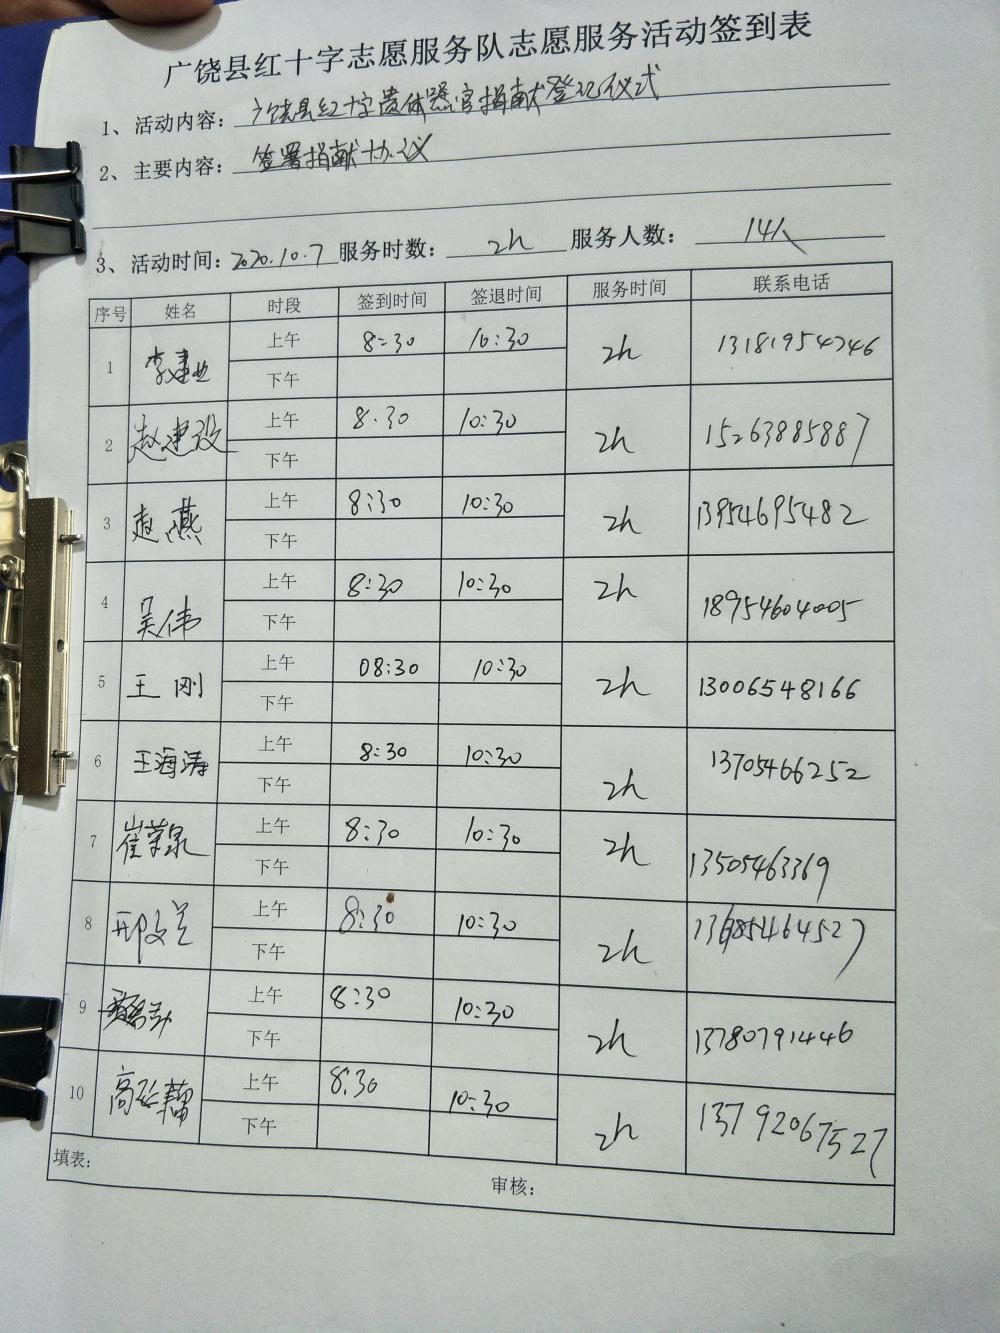 广饶县红十字志愿服务队志愿服务活动签到表
1、活动内容：广饶县红十字遗体器官捐献登记仪式
2、主要内容：签署捐献协议
3、活动时间：2020.10.7 服务时数：2h 服务人数：14人
序号 姓名 时段 签到时间 签退时间 服务时间 联系电话
1 李建业 上午 8:30 10:30 2h 13181954746
下午
2 赵建设 上午 8:30 10:30 2h 15263885887
下午
3 赵燕 上午 8:30 10:30 2h 13954695482
下午
4 吴伟 上午 8:30 10:30 2h 18954604005
下午
5 王刚 上午 08:30 10:30 2h 13006548166
下午
6 王海涛 上午 8:30 10:30 2h 13705466252
下午
7 崔荣泉 上午 8:30 10:30 2h 13505463369
下午
8 邢文兰 上午 8:30 10:30 2h
下午
9 上午 8:30 10:30 2h 13780791446
下午
10 上午 8:30 10:30 2h 13792067527
下午
填表：
审核：